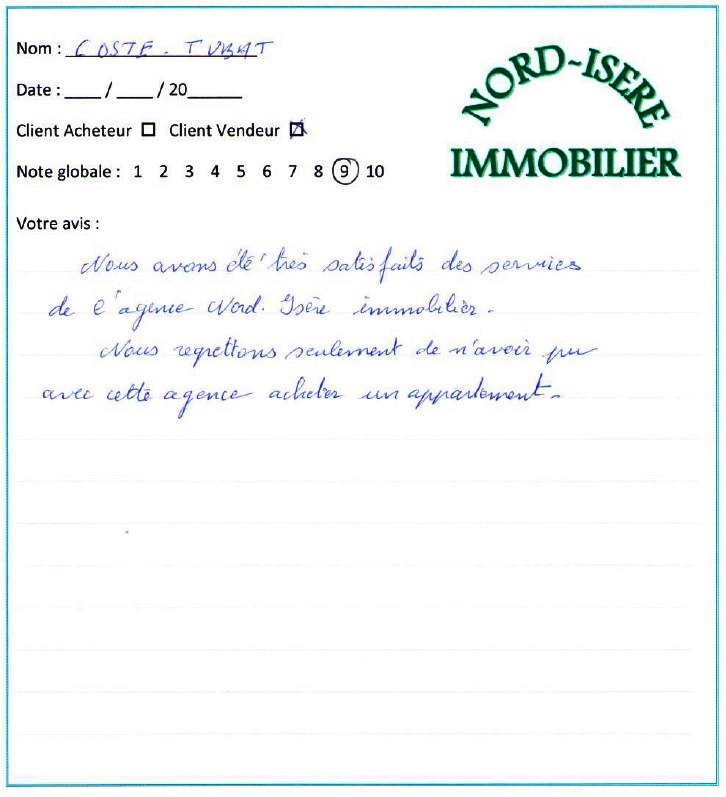 Nom : COSTE - TUBAT
NORD-ISERE
IMMOBILIER
Date : ____ / ____ / 20______
Client Acheteur ☐ Client Vendeur ☒
Note globale : 1 2 3 4 5 6 7 8 9 10
Votre avis :
Nous avons été très satisfaits des services
de l'agence Nord. Isère immobilier.
Nous regrettons seulement de n'avoir pu
avec cette agence acheter un appartement.